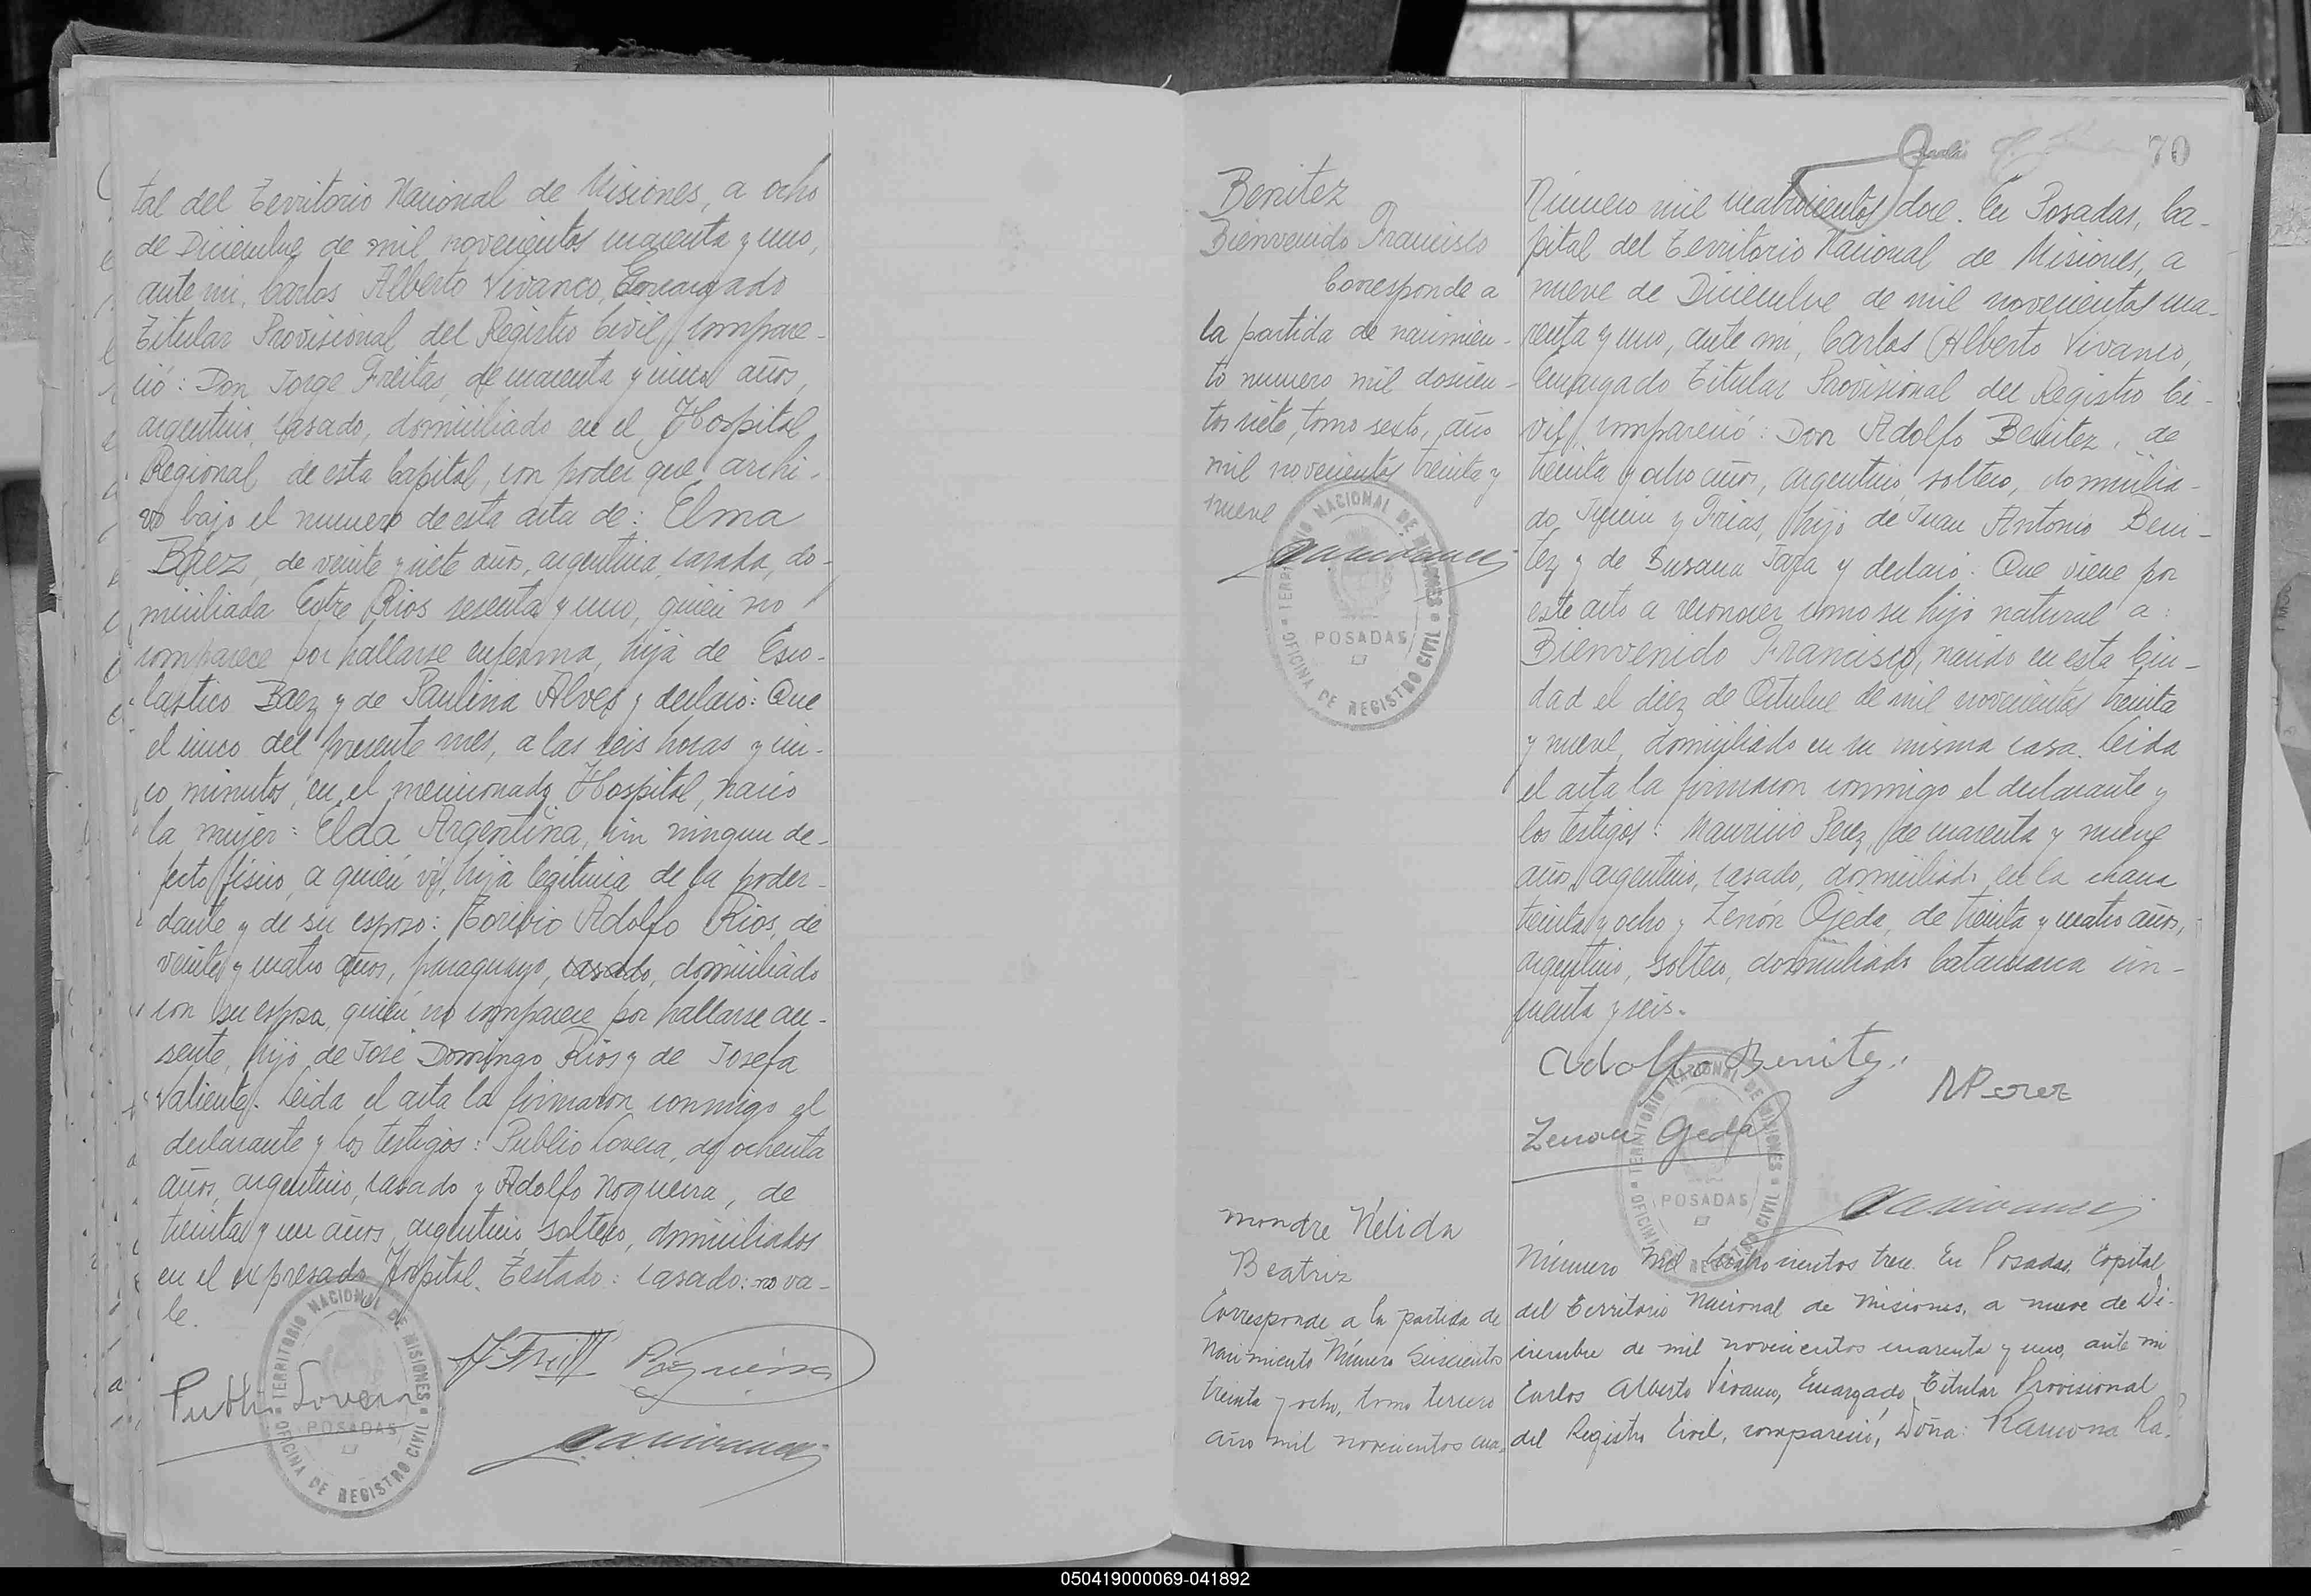 tal del Territorio Nacional de Misiones, a ocho
de Diciembre de mil novecientos cuarenta y uno,
ante mi, Carlos Alberto Vivanco, Encargado
Titular Provisional del Registro Civil, compare-
ció: Don Jorge Freitas, de cuarenta y cinco años,
argentino, casado, domiciliado en el Hospital
Regional de esta Capital, con poder que archi-
vo bajo el numero de esta acta de: Elma
Báez, de veinte y siete años, argentina, casada, do-
miciliada Entre Rios sesenta y uno, quién no
comparece por hallarse enferma, hija de Esco-
lástico Baez y de Paulina Alves y declaró: Que
el cinco del presente mes, a las seis horas y cin-
co minutos, en el mencionado Hospital, nació
la mujer: Elda Argentina, sin ningun de-
fecto fisico, a quién ví, hija legitima de la poder-
dante y de su esposo: Toribio Adolfo Rios, de
veinte y cuatro años, paraguayo, casado, domiciliado
con su esposa, quién no comparece por hallarse au-
sente, hijo de José Domingo Rios y de Josefa
Valiente. Leida el acta la firmaron conmigo el
declarante y los testigos: Publio Lovera, de ochenta
años, argentino, casado y Adolfo Nogueira, de
treinta y un años, argentino soltero, domiciliados
en el expresado Hospital. Testado: casado: no va-
le.
Publio Lovera
TERRITORIO NACIONAL DE MISIONES
POSADAS
OFICINA DE REGISTRO CIVIL
70
Benitez
Bienvenido Francisco
Corresponde a
la partida de nacimien-
to numero mil doscien-
tos siete, tomo sexto, año
mil novecientos treinta y
nueve
TERRITORIO NACIONAL DE MISIONES
POSADAS
OFICINA DE REGISTRO CIVIL
Número mil cuatrocientos doce. En Posadas, Ca-
pital del Territorio Nacional de Misiones, a
nueve de Diciembre de mil novecientos cua-
renta y uno, ante mi, Carlos Alberto Vivanco,
Encargado Titular Provisional del Registro Ci-
vil, compareció: Don Adolfo Benitez, de
treinta y ocho años, argentino, soltero, domicilia-
do, Junin y Frias, hijo de Juan Antonio Beni-
tez y de Susana y declaró: Que viene por
este acto a reconocer como su hijo natural a:
Bienvenido Francisco, nacido en esta Ciu-
dad el diez de Octubre de mil novecientos treinta
y nueve, domiciliado en su misma casa. Leida
el acta la firmaron conmigo el declarante y
los testigos: Mauricio Perez, de cuarenta y nueve
años, argentino, casado, domiciliado en la chacra
treinta y ocho y Zenón Ojeda, de treinta y cuatro años,
argentino, soltero, domiciliado Catamarca cin-
cuenta y seis.
Adolfo Benitez.
MPerez
Zenon Ojeda
TERRITORIO NACIONAL DE MISIONES
POSADAS
OFICINA DE REGISTRO CIVIL
Mondre Nélida
Beatriz
Corresponde a la partida de
Nacimiento Número Seiscientos
treinta y ocho, tomo tercero
año mil novecientos cua-
Número mil cuatrocientos trece. En Posadas, Capital
del Territorio Nacional de Misiones, a nueve de Di-
ciembre de mil novecientos cuarenta y uno, ante mi
Carlos Alberto Vivanco, Encargado Titular Provisional
del Registro Civil, compareció, Doña: Ramona Ra-
050419000069-041892